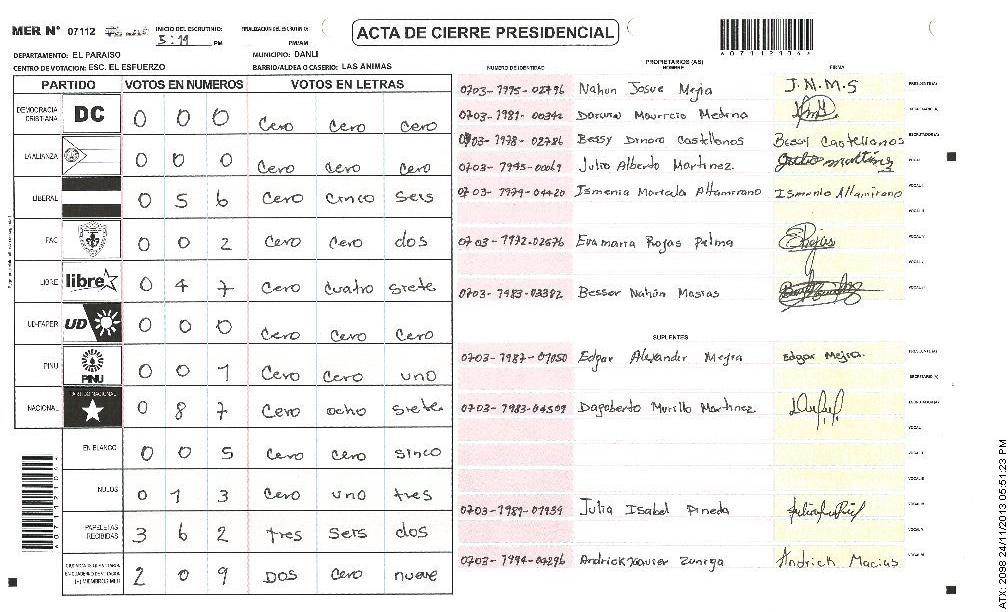 MER Nº 07112 INICIO DEL ESCRUTINIO: 5:19 PM FINALIZACION DEL ESCRUTINIO: PM/AM
ACTA DE CIERRE PRESIDENCIAL
DEPARTAMENTO: EL PARAISO MUNICIPIO: DANLI
CENTRO DE VOTACION: ESC. EL ESFUERZO BARRIO/ALDEA O CASERIO: LAS ANIMAS
PARTIDO VOTOS EN NUMEROS VOTOS EN LETRAS
DEMOCRACIA CRISTIANA DC 0 0 0 Cero Cero Cero
LA ALIANZA 0 0 0 Cero Cero Cero
LIBERAL 0 5 6 Cero Cinco Seis
FAC 0 0 2 Cero Cero dos
LIBRE libre 0 4 7 Cero Cuatro Siete
UD-FAPER UD 0 0 0 Cero Cero Cero
PINU PINU 0 0 1 Cero Cero uno
NACIONAL PARTIDO NACIONAL 0 8 7 Cero ocho Siete
EN BLANCO 0 0 5 Cero Cero Sinco
NULOS 0 1 3 Cero uno tres
PAPELETAS RECIBIDAS 3 6 2 tres Seis dos
2 0 9 DOS Cero nueve
PROPIETARIOS (AS)
NUMERO DE IDENTIDAD NOMBRE FIRMA
0703-1995-02796 Nahun Josue Mejia J.N.M.S
0703-1981-00342 Mauricio Medina
Bessy Castellanos Bessy Castellanos
0703-1945-00069 Julio Alberto Martinez. Julio martínez
0703-1979-04420 Ismenia Altamirano Ismenia Altamirano
0703-1972-02676 Eva maria Rojas Palma ERojas
Nahún
SUPLENTES
0703-1987-01050 Edgar Alexander Mejia Edgar Mejia.
0703-1983-04509 Dagoberto Murillo Martinez
0703-1989-01939 Julia Isabel Pineda
0703-1994-04296 Andrick Xavier Zuniga Andrick Macias
ATX: 2098 24/11/2013 05:51:23 PM